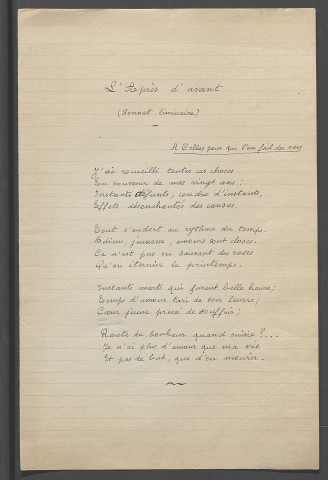 L'Après d'avant
(Sonnet liminaire)
A Celles pour qui l'on fait des vers
J'ai recueilli toutes ces choses
En souvenir de mes vingt ans :
Instants défunts, cendre d'instants,
Effets désenchantés des causes.
Tout s'endort au rythme du temps.
Adieu, jeunesse, amours sont closes.
Ce n'est pas en sauvant des roses
Qu'on éternise le printemps.
Instants morts qui furent belle heure ;
Temps d'amour tari de son leurre ;
Cœur jeune pressé de souffrir ;
Route du bonheur quand suivie ?...
Je n'ai plus d'amour que ma vie
Et pas de but, que d'en mourir.